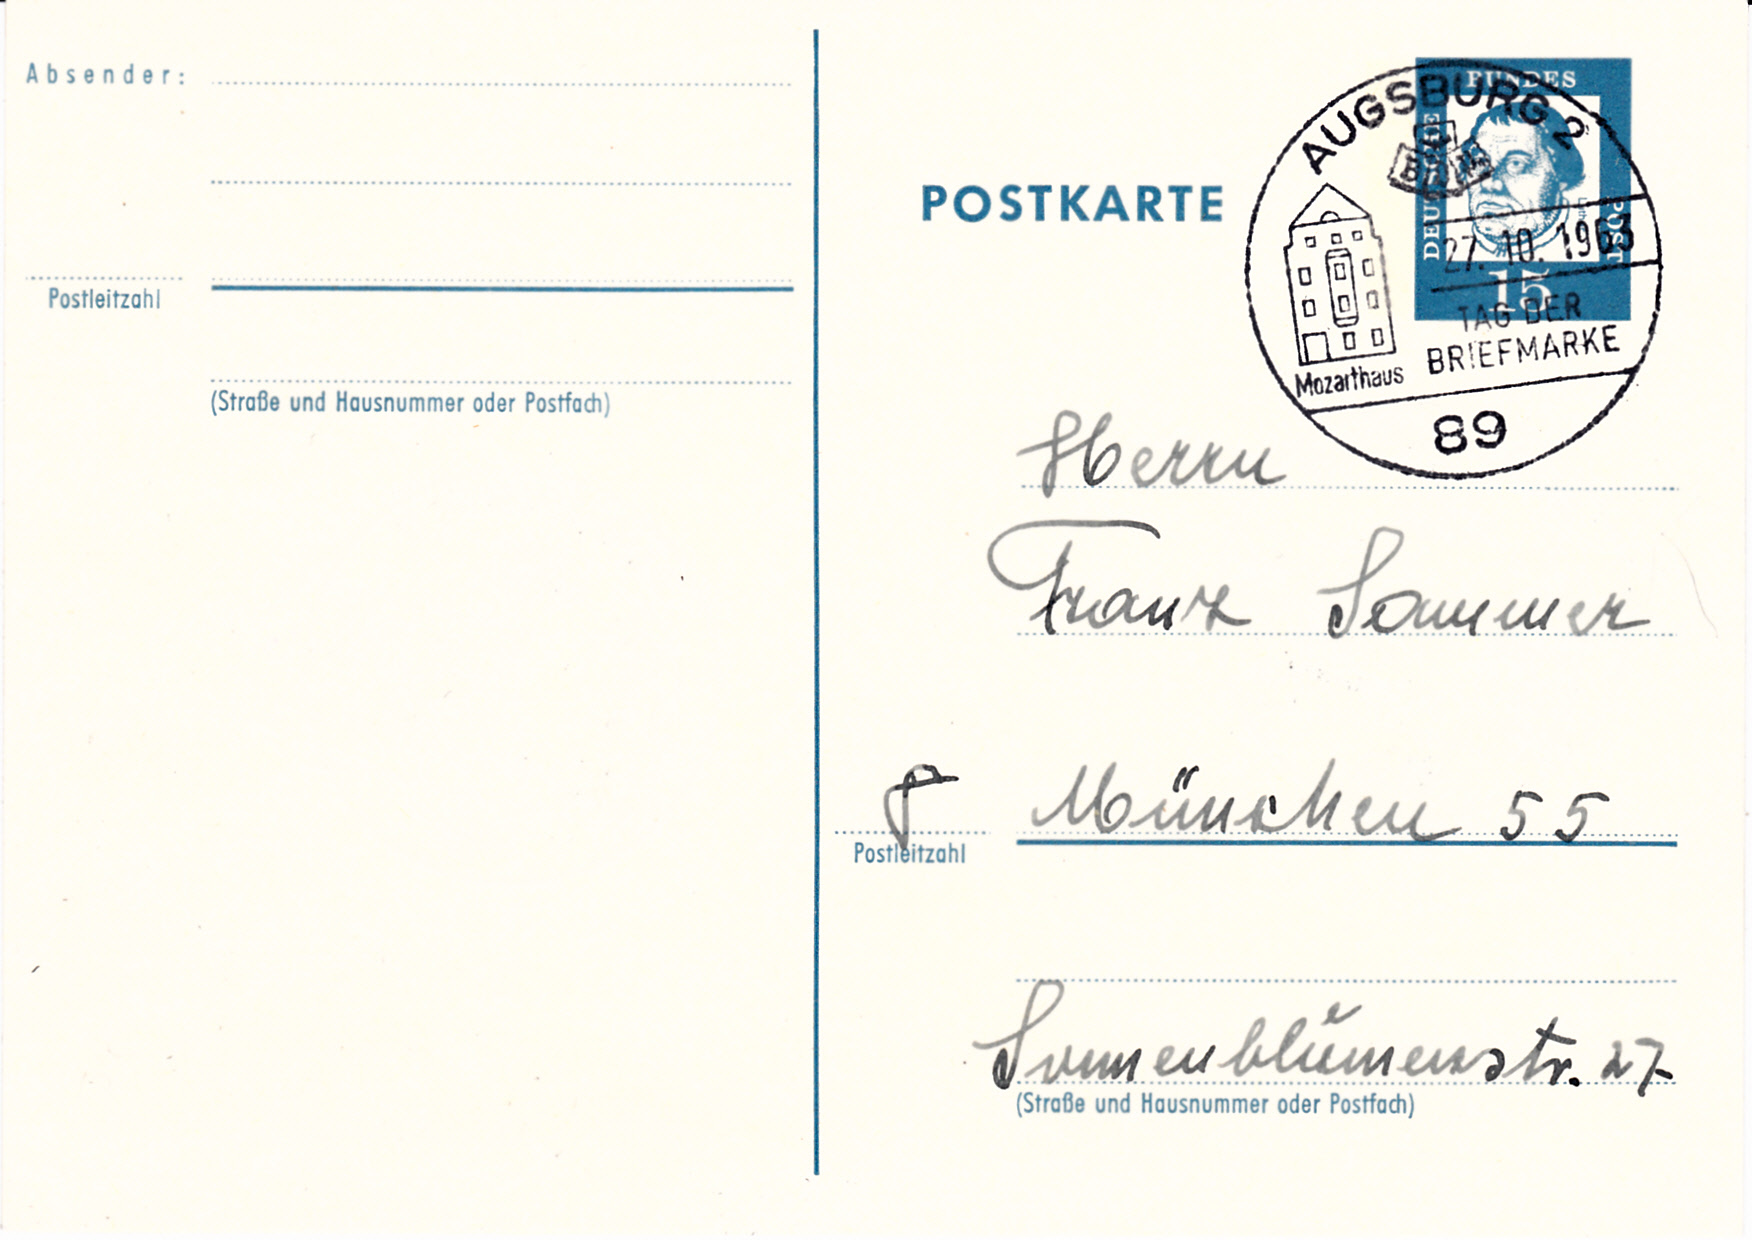 Absender:
Postleitzahl
(Straße und Hausnummer oder Postfach)
POSTKARTE
DEUTSCHE
BUNDES
POST
15
AUGSBURG 2
27. 10. 1963
TAG DER
BRIEFMARKE
Mozarthaus
89
Herrn
Franz Sommer
8 München 55
Postleitzahl
Sonnenblumenstr. 27
(Straße und Hausnummer oder Postfach)